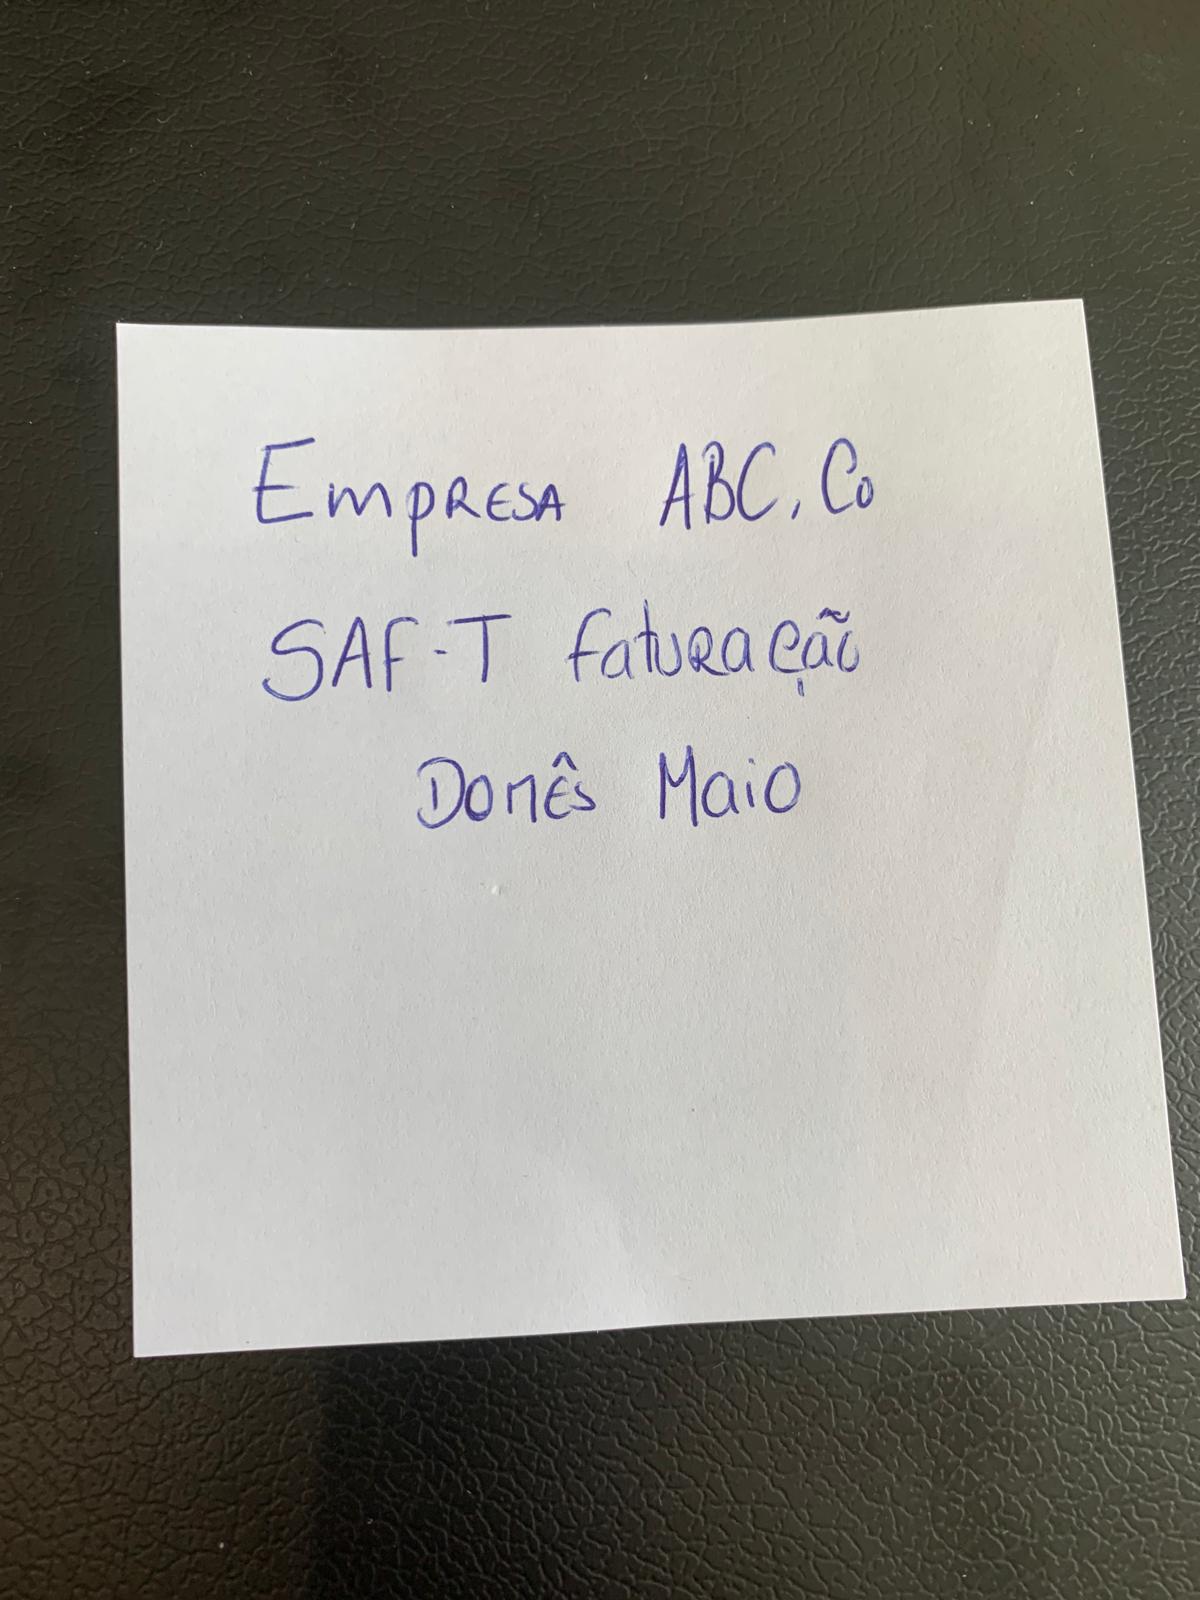 Empresa ABC, Co
SAF-T faturação
Do mês Maio